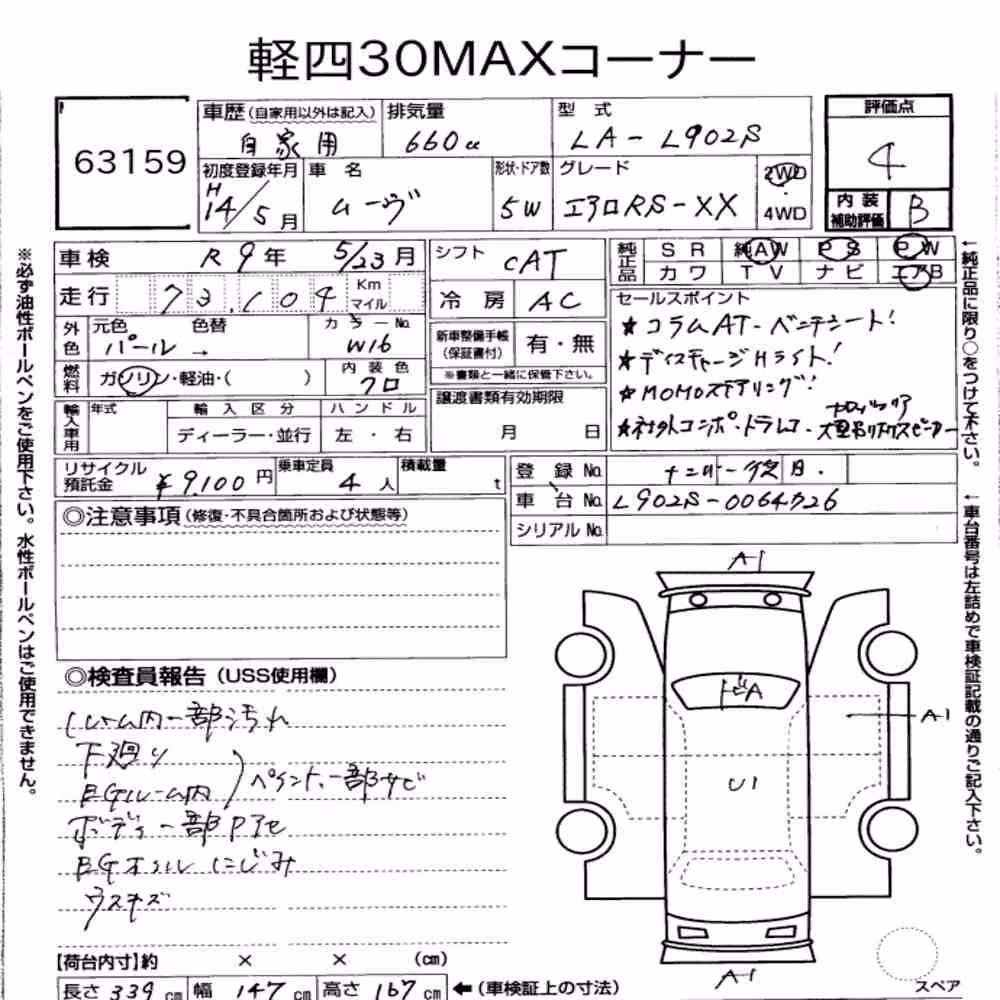 軽四30MAXコーナー
63159
車歴(自家用以外は記入)
自家用
排気量
660cc
型式
LA-L902S
評価点
4
初度登録年月
H
14/5月
車名
ムーヴ
形状・ドア数
5W
グレード
エアロRS-XX
2WD
・
4WD
内装
補助評価
B
車検 R9年 5/23月
シフト cAT
純正品
SR 純AW PS PW
カワ TV ナビ エアB
走行 73,104 Km マイル
冷房 AC
セールスポイント
★コラムAT-ベンチシート!
★ディスチャージHライト!
★MOMOステアリング!
★社外コンポ・ドラレコ・
外色
元色 色替
パール →
カラーNo.
W16
新車整備手帳
(保証書付)
有・無
※書類と一緒に保管下さい。
燃料 ガソリン・軽油・( )
内装色
クロ
譲渡書類有効期限
月 日
輸入車用
年式
輸入区分
ハンドル
ディーラー・並行
左・右
リサイクル
預託金
¥9,100円
乗車定員
4人
積載量
t
登録No.
ナンバー後日.
車台No.
L902S-0064726
シリアルNo.
◎注意事項(修復・不具合箇所および状態等)
◎検査員報告(USS使用欄)
ルーム内一部汚れ
下廻り
EGルーム内
ペイント、一部サビ
ボディ一部Pアセ
EGオイルにじみ
ウスキズ
A1
ドビA
A1
U1
A1
スペア
【荷台内寸】約 × × (cm)
長さ 339cm 幅 147cm 高さ 167cm ←(車検証上の寸法)
※必ず油性ボールペンをご使用下さい。水性ボールペンはご使用できません。
←純正品に限り○をつけて下さい。
←車台番号は左詰めで車検証記載の通りご記入下さい。